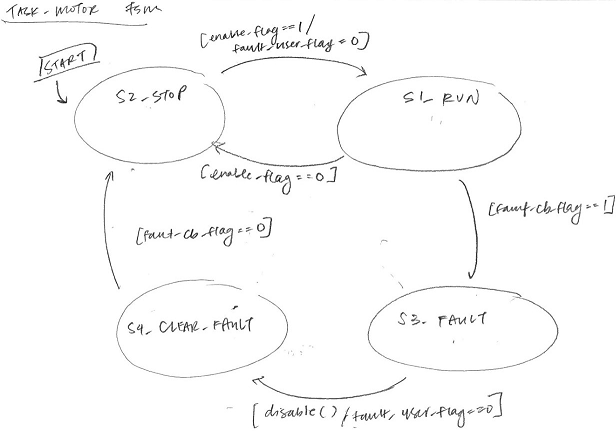 TASK_MOTOR FSM
[enable_flag==1/
fault_user_flag=0]
START
S2_STOP
S1_RUN
[enable_flag==0]
[fault_cb_flag==0]
[fault_cb_flag==1]
S4_CLEAR_FAULT
S3_FAULT
[disable()/fault_user_flag==0]